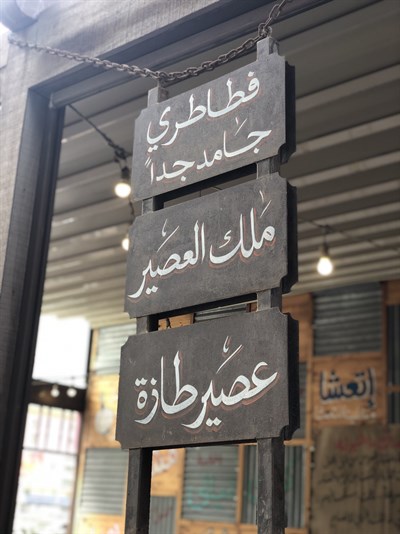 فطاطري
جامد جداً
ملك العصير
عصير طازة
إتعشا